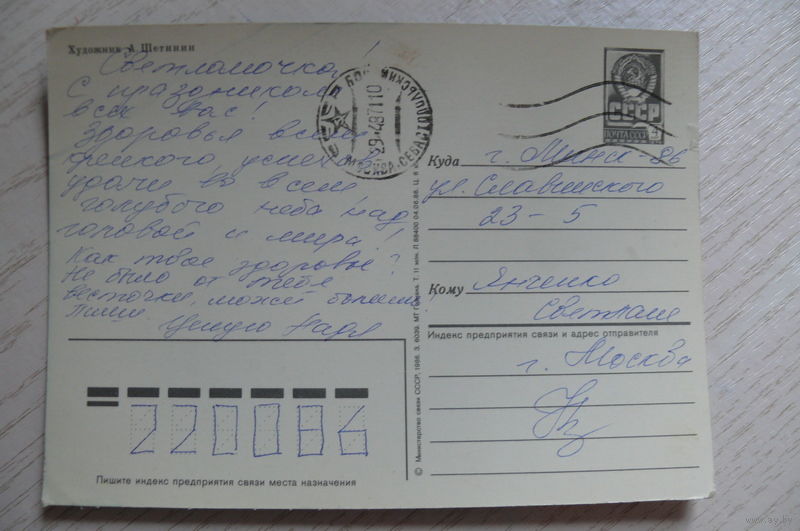 Художник А. Щетинин
Светланочка!
С праздником
всех Вас!
Здоровья всем
успехов
удачи во всем
голубого неба над
головой и мира!
Как твое здоровье?
Не было от тебя
весточки, может
пиши. Целую
СССР
ПОЧТА СССР
МОСКВА-СЕВАСТОПОЛЬСКИЙ
Куда г. Минск-86
ул. Славинского
23-5
Кому Янченко
Светлане
Индекс предприятия связи и адрес отправителя
г. Москва
220086
Пишите индекс предприятия связи места назначения
© Министерство связи СССР. 1986. З. 6039. МТ Гознака. Т. 11 млн. Л 88400 04.06.86. Ц. 4
www.ay.by